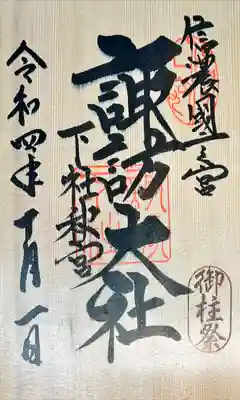 信濃國一之宮
諏訪大社
下社秋宮
令和四年十一月一日
御柱祭